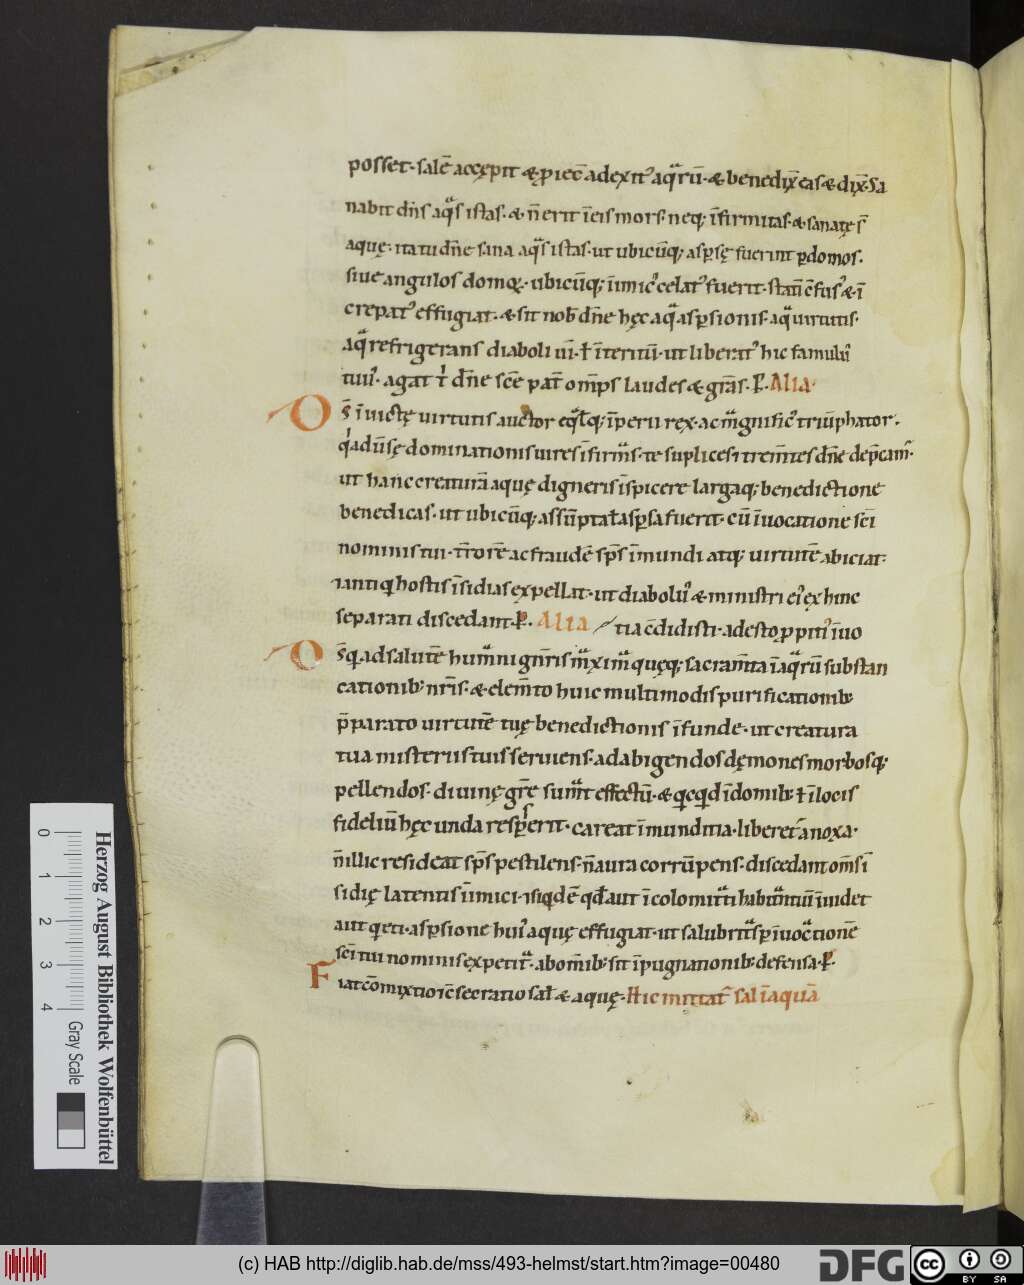 posset· salē accępit & ꝓiec̄ adexit᾽ aqᷓrū· & benedix̄ eas & dix̄· Sa
nabit dn̄s aqᷓs istas· & n̄ erit ī eis mors· neq; īfirmitas· & sanatę s̄
aquę· ita tu dn̄e sana aqᷓs istas· ut ubicūq; aspsę fuerint ꝑ domos·
siue angulos domoꝝ· ubicūq; inimic᾽ celat᾽ fuerit· statī ꝯfus᾽ & ī
crepat᾽ effugiat· & sit nob̄ dn̄e hęc aqᷓ aspsionis· aqᷓ uirtutis·
aqᷓ refrigerans diaboli ūi· ł īteritū· ut liberat᾽ hic famulus
tuus· agat t dn̄e sc̄e pat̄ om̄ps laudes & gr̄as· P· Alia·
O s̄ īuictę uirtutis auctor eqᷓł q; īperii rex· ac mᷓgnific᾽ triūphator·
qui aduersę dominationis uires ifirmᷓs· te suplices & trem̄tes dn̄e dep̄cam᾽
ut hanc creturā aquę digneris īspicere largaq; benedictione
benedicas· ut ubicūq; assūpta ł aspsa fuerit· cū īuocatione sc̄i
nominis tui· t̄rorē ac fraudē sps̄ īmundi atq; uirtutē abiciat·
& antiq hostis īsidias expellat· ut diabolus & ministri ei᾽ ex hinc
separati discedant· P· Alia tia c̄didisti· adesto ꝓpiti᾽ īuo
O s̄ q ad salutē humᷓni gn̄ris mᷓximᷓ quęq; sacram̄ta ī aqᷓrū substan
cationib; nr̄is· & elem̄to huic multimodis purificationib;
p̄parato uirtutē tuę benedictionis īfunde· ut creatura
tua misteriis tuis seruiens· ad abigendos dęmones morbosq;
pellendos· diuinę gr̄e sumᷓt effectū· & qicqid ī domib; ł ī locis
fideliū hęc unda resperserit· careat īmunditia· liberet᾽ a noxa·
n̄ illic resideat sps̄ pestilens· n̄ aura corrūpens· discedant om̄s ī
sidię latentis īimici· & siqidē qđ aut īcolomitᷓti habitᷓntiū īuidet
aut qieti· aspsione hui᾽ aquę effugiat· ut salubritᷓs ꝑ īuocᷓtionē
sc̄i tui nominis expetitᷓ· ab om̄ib; sit īpugnationib; defensa· P·
F iat cōmixtio & cōsecratio sał & aquę· Hic mittat᾽ sal ī aquā
0
1
2
3
4
Herzog August Bibliothek Wolfenbüttel
Gray Scale
(c) HAB http://diglib.hab.de/mss/493-helmst/start.htm?image=00480
DFG
cc
BY SA